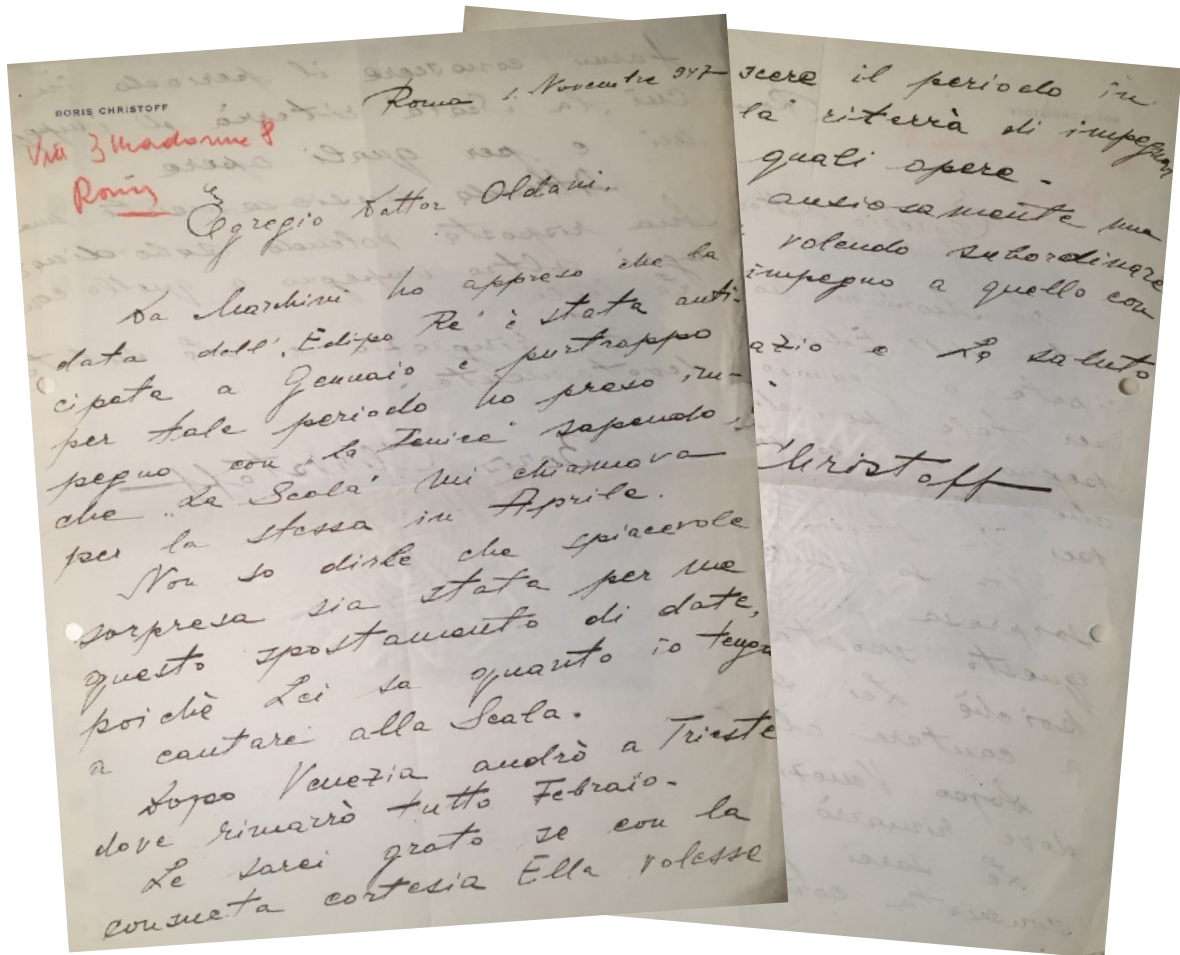 BORIS CHRISTOFF
Via 3 Madonne 8
Roma
Roma 1. Novembre 947
Egregio Dottor Oldani.
Da Marchini ho appreso che la
data dell' „Edipo Re" è stata anti-
cipata a Gennaio e purtroppo
per tale periodo ho preso im-
pegno con „La Fenice" sapendo
che „La Scala" mi chiamava
per la stessa in Aprile.
Non so dirle che spiacevole
sorpresa sia stata per me
questo spostamento di date,
poichè Lei sa quanto io tenga
a cantare alla Scala.
Dopo Venezia andrò a Trieste
dove rimarrò tutto Febraio-
Le sarei grato se con la
consueta cortesia Ella volesse
scere il periodo in
la riterrà di impegnar
quali opere -
ansiosamente una
volendo subordinare
impegno a quello con
azio e Le saluto
Christoff